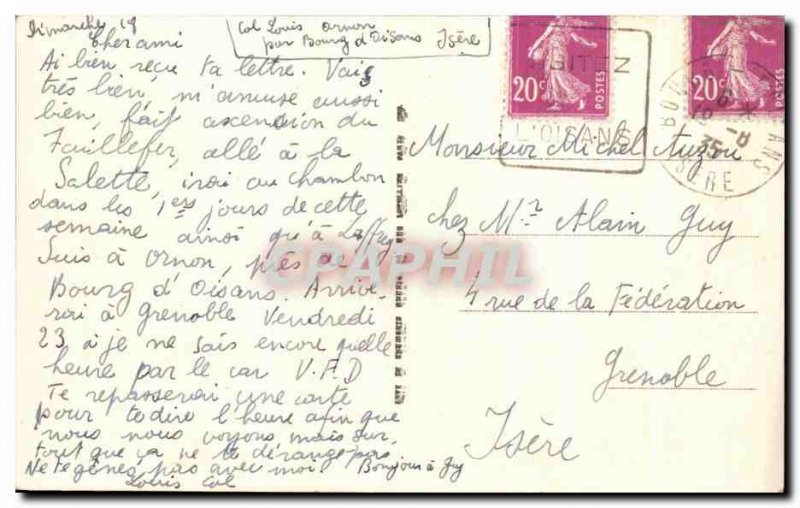 Dimanche 18
Col Louis Ornon
par Bourg d'Oisans Isère
Cher ami
Ai bien reçu ta lettre. Vais
très bien, m'amuse aussi
bien, fait ascension du
Taillefer, allé à la
Salette, irai au Chambon
dans les 1ers jours de cette
semaine ainsi qu'à Laffrey
Suis à Ornon, près de
Bourg d'Oisans. Arrive-
rai à Grenoble Vendredi
23 à je ne sais encore quelle
heure par le car V.F.D
Te repasserai une carte
pour te dire l'heure afin que
nous nous voyons mais sur-
tout que ça ne te dérange pas
Ne te gênes pas avec moi. Bonjour à Guy
Louis Col
20c POSTES
20c POSTES
VISITEZ
L'OISANS
18 -8
35
ISERE
Monsieur Michel Auzou
chez Mr Alain Guy
4 rue de la Fédération
Grenoble
Isère
CPAPHIL